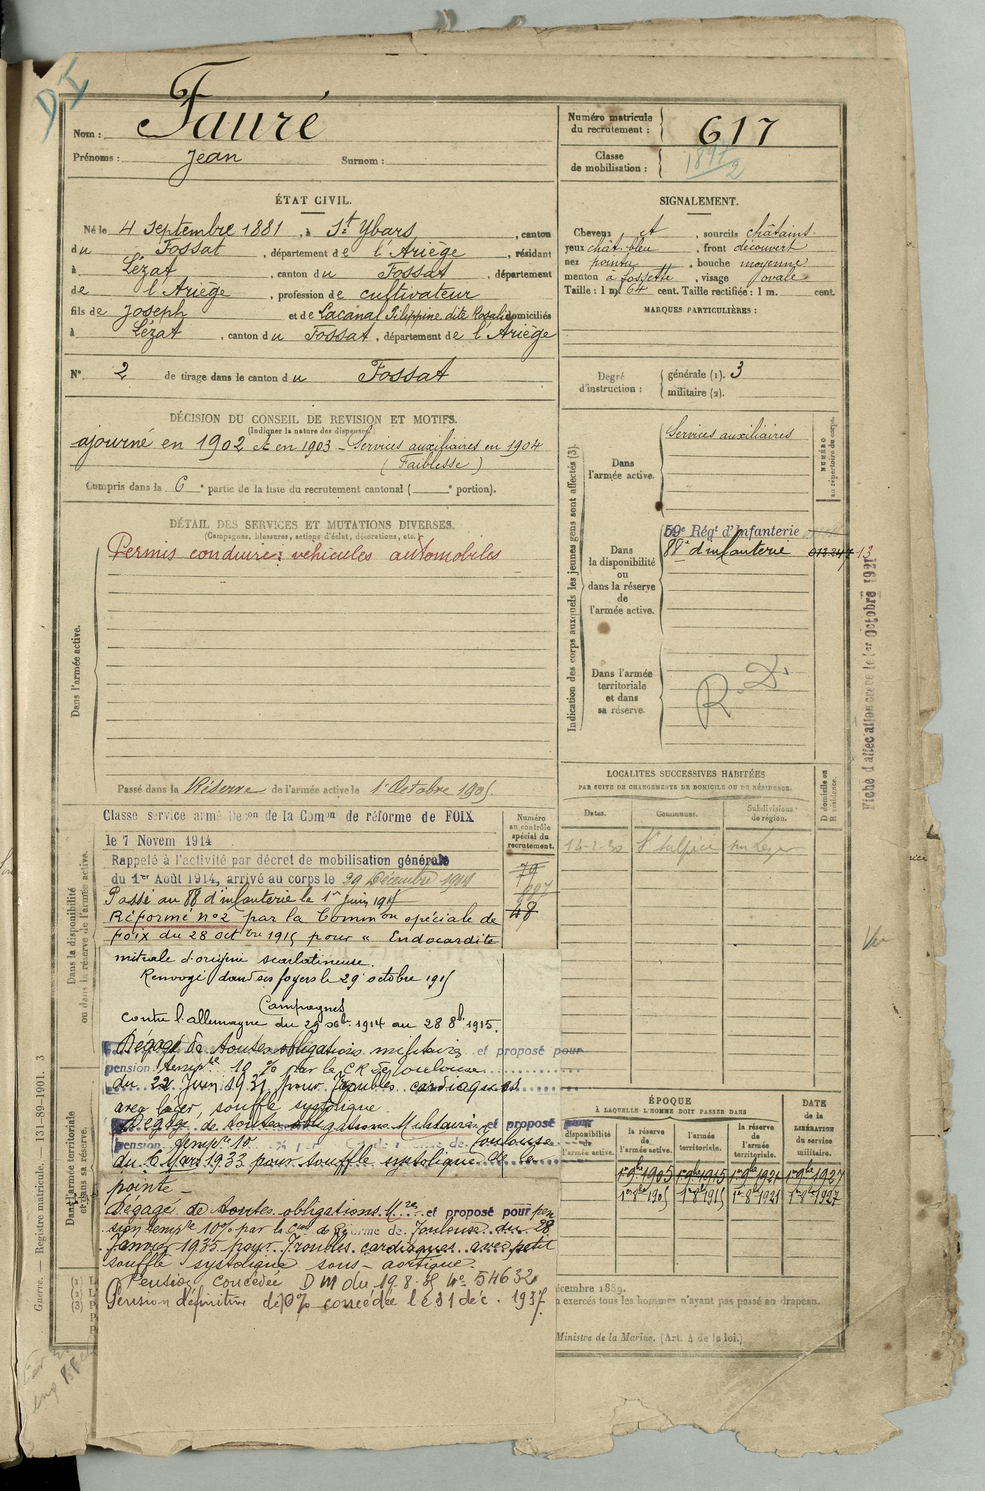 Nom : Fauré
Prénoms : Jean Surnom :
Numéro matricule du recrutement : 617
Classe de mobilisation :
ÉTAT CIVIL.
Né le 4 septembre 1881, à St Ybars, canton
du Fossat, département de l'Ariège, résidant
à Lézat, canton du Fossat, département
de l'Ariège, profession de cultivateur
fils de Joseph et de Lacanal Filippine dite Rosalie domiciliés
à Lézat, canton du Fossat, département de l'Ariège
N° 2 de tirage dans le canton du Fossat
SIGNALEMENT.
Cheveux et, sourcils châtains
yeux chât. bleu, front découvert
nez pointu, bouche moyenne
menton à fossette, visage ovale
Taille : 1 m. 64 cent. Taille rectifiée : 1 m. cent.
MARQUES PARTICULIÈRES :
Degré d'instruction : générale (1). 3
militaire (2).
DÉCISION DU CONSEIL DE REVISION ET MOTIFS.
(Indiquer la nature des dispenses)
ajourné en 1902 et en 1903 - Services auxiliaires en 1904
(Faiblesse)
Compris dans la 6e partie de la liste du recrutement cantonal ( e portion).
DÉTAIL DES SERVICES ET MUTATIONS DIVERSES.
(Campagnes, blessures, actions d'éclat, décorations, etc.)
Permis conduire : véhicules automobiles
Dans l'armée active.
Passé dans la Réserve de l'armée active le 1er Octobre 1905
Indication des corps auxquels les jeunes gens sont affectés (3).
NUMÉRO au répertoire du corps.
Dans l'armée active.
Services auxiliaires
Dans la disponibilité ou dans la réserve de l'armée active.
59e Régt d'Infanterie
88e d'infanterie
Dans l'armée territoriale et dans sa réserve.
R. D.
Fiche d'affectation créée le 1er Octobre 1921
Dans la disponibilité ou dans la réserve de l'armée active.
Classe service armé Déçon de la Comon de réforme de FOIX
le 7 Novem 1914
Rappelé à l'activité par décret de mobilisation générale
du 1er Août 1914, arrivé au corps le 29 Décembre 1914
Passé au 88 d'infanterie le 1er juin 1915
Réformé n°2 par la Common spéciale de
Foix du 28 octbre 1915 pour "Endocardite
mitrale d'origine scarlatineuse.
Renvoyé dans ses foyers le 29 octobre 1915
Campagnes
Contre l'allemagne du 29 xbre 1914 au 28 8b 1915.
Dégagé de toutes obligations militaires et proposé pour
pension tempre 10 % par le CR de Toulouse
du 22 Juin 1931 pour Troubles cardiaques
avec léger souffle systolique.
Dégagé de toutes obligations Militaires et proposé pour
pension tempre 10 % par C de de Toulouse
du 6 Mars 1933 pour souffle systolique de la
pointe -
Dégagé de toutes obligations Mres et proposé pour pen
sion tempre 10% par la Con de Réforme de Toulouse du 28
Janvier 1935 pour Troubles cardiaques avec petit
souffle systolique sous-aortique.
Pension concédée D M du 19.8.35 n° 54632
Pension définitive de 10% concédée le 31 déc. 1937.
Numéro au contrôle spécial du recrutement.
79
48
LOCALITES SUCCESSIVES HABITÉES
PAR SUITE DE CHANGEMENTS DE DOMICILE OU DE RÉSIDENCE.
Dates. Communes. Subdivisions de région. D domicile ou R résidence.
St Sulpice
ÉPOQUE
À LAQUELLE L'HOMME DOIT PASSER DANS
DATE de la LIBÉRATION du service militaire.
disponibilité de l'armée active. la réserve de l'armée active. l'armée territoriale. la réserve de l'armée territoriale.
1er 9bre 1905 1er 9bre 1915 1er 9bre 1921 1er 9bre 1927
1er 8bre 1905 1er 8 1915 1er 8 1921 1er 8 1927
Dans l'armée territoriale et dans sa réserve.
(1)
(2)
(3)
écembre 1889.
exercés tous les hommes n'ayant pas passé au drapeau.
Ministre de la Marine. (Art. 4 de la loi.)
Guerre. — Registre matricule. — 131-89-1901. 3